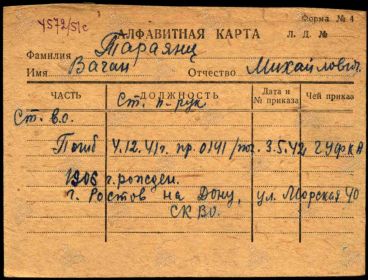 У572/51с
Форма № 4
АЛФАВИТНАЯ КАРТА Л. Д. №
Фамилия Тараянц
Имя Вачан Отчество Михайлович
ЧАСТЬ ДОЛЖНОСТЬ Дата и № приказа Чей приказ
Ст. п-рук
Ст. в.о.
Погиб 4.12.41г. пр. 0141/пог. 3.5.42 ГУФКА
1906 г. рожден.
г. Ростов на Дону, ул. Морская 40
СКВО.